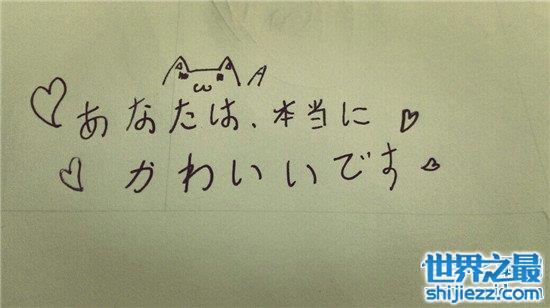 A
あなたは、本当に
かわいいです
世界之最
shijiezz.com